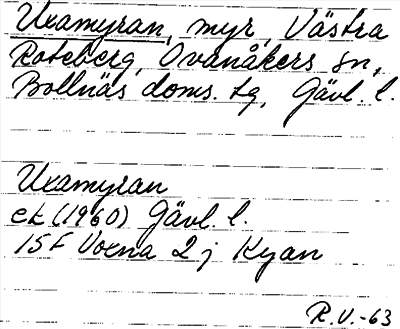 Uxamyran, myr, Västra
Roteberg, Ovanåkers sn,
Bollnäs doms. tg, Gävl. l.
Uxamyran
ek (1960) Gävl. l.
15F Voxna 2j Kyan
R.V.-63